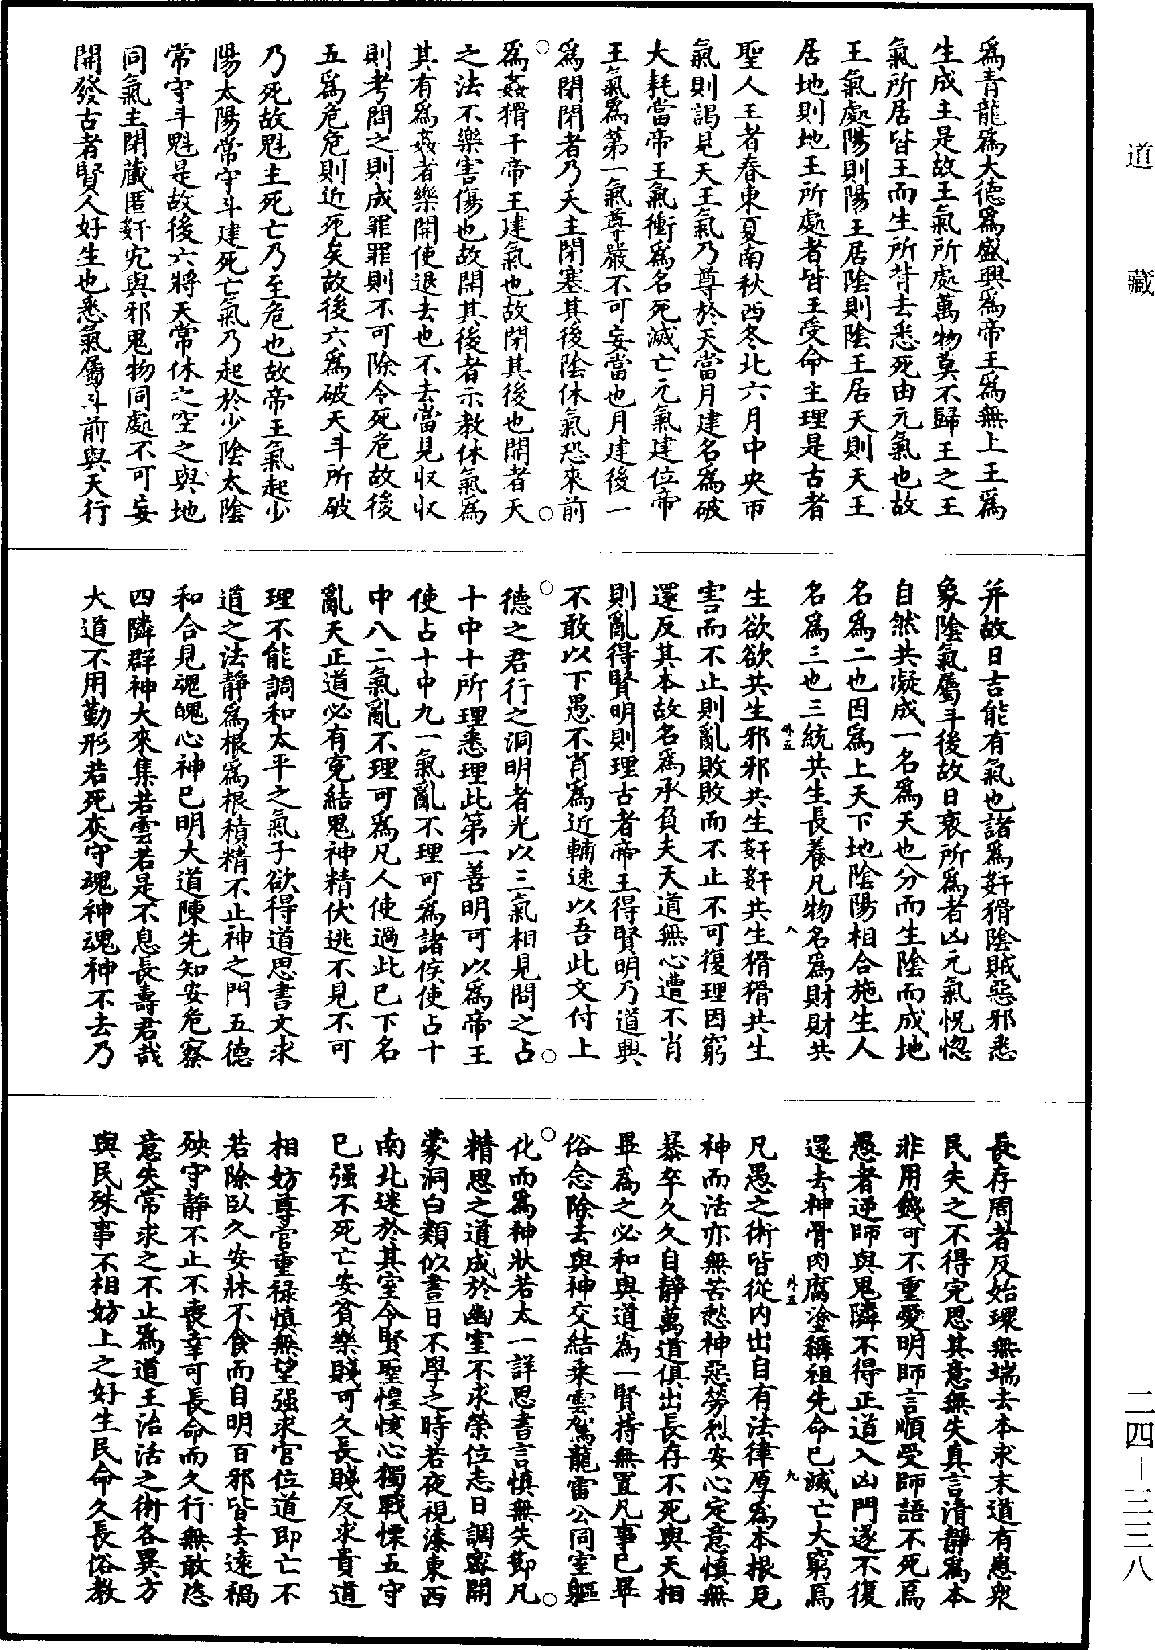 道藏
爲青龍爲大德爲盛興爲帝王爲無上王爲
生成主是故王氣所處萬物莫不歸王之王
氣所居皆王而生所背去悉死由元氣也故
王氣處陽則陽王居陰則陰王居天則天王
居地則地王所處者皆王受命主理是古者
聖人王者春東夏南秋西冬北六月中央帀
氣則謁見天王氣乃尊於天當月建名爲破
大耗當帝王氣衝爲名死滅亡元氣建位帝
王氣爲第一氣尊嚴不可妄當也月建後一
爲閉閉者乃天主閉塞其後陰休氣恐來前
爲姦猾干帝王建氣也故閉其後也開者天
之法不樂害傷也故開其後者示教休氣爲
其有爲姦者樂開使退去也不去當見收收
則考問之則成罪罪則不可除令死危故後
五爲危危則近死矣故後六爲破天斗所破
乃死故魁主死亡乃至危也故帝王氣起少
陽太陽常守斗建死亡氣乃起於少陰太陰
常守斗魁是故後六將天常休之空之與地
同氣主閉藏匿奸宄與邪鬼物同處不可妄
開發古者賢人好生也悉氣屬斗前與天行
并故日吉能有氣也諸爲奸猾陰賊惡邪悉
象陰氣屬斗後故日衰所爲者凶元氣怳惚
自然共凝成一名爲天也分而生陰而成地
名爲二也因爲上天下地陰陽相合施生人
名爲三也三統共生長養凡物名爲財財共
生欲欲共生邪邪共生奸奸共生猾猾共生
害而不止則亂敗敗而不止不可復理因窮
還反其本故名爲承負夫天道無心遭不肖
則亂得賢明則理古者帝王得賢明乃道興
不敢以下愚不肖爲近輔速以吾此文付上
德之君行之洞明者光以三氣相見問之占
十中十所理悉理此第一善明可以爲帝王
使占十中九一氣亂不理可爲諸侯使占十
中八二氣亂不理可爲凡人使過此已下名
亂天正道必有寃結鬼神精伏逃不見不可
理不能調和太平之氣子欲得道思書文求
道之法靜爲根爲根積精不止神之門五德
和合見魂魄心神已明大道陳先知安危察
四隣群神大來集若雲若是不息長壽君哉
大道不用勤形若死灰守魂神魂神不去乃
長存周者反始環無端去本求末道有患衆
民失之不得完思其意無失真言清靜爲本
非用錢可不重愛明師言順受師語不死焉
愚者逆師與鬼隣不得正道入凶門遂不復
還去神骨肉腐塗稱祖先命已滅亡大窮焉
凡愚之術皆從内出自有法律厚爲本根見
神而活亦無苦愁神惡勞烈安心定意慎無
暴卒久久自靜萬道俱出長存不死與天相
畢爲之必和與道爲一賢持無置凡事已畢
俗念除去與神交結乘雲駕龍雷公同室軀
化而爲神狀若太一詳思書言慎無失節凡
精思之道成於幽室不求榮位志日調密開
蒙洞白類似晝日不學之時若夜視漆東西
南北迷於其室令賢聖惶憹心獨戰慄五守
已强不死亡安貧樂賤可久長賤反求貴道
相妨尊官重禄慎無望强求官位道即亡不
若除臥久安牀不食而自明百邪皆去遠禍
殃守靜不止不喪幸可長命而久行無敢恣
意失常求之不止爲道王治活之術各異方
與民殊事不相妨上之好生民命久長俗教
外五
八
外五
九
二四—三三八